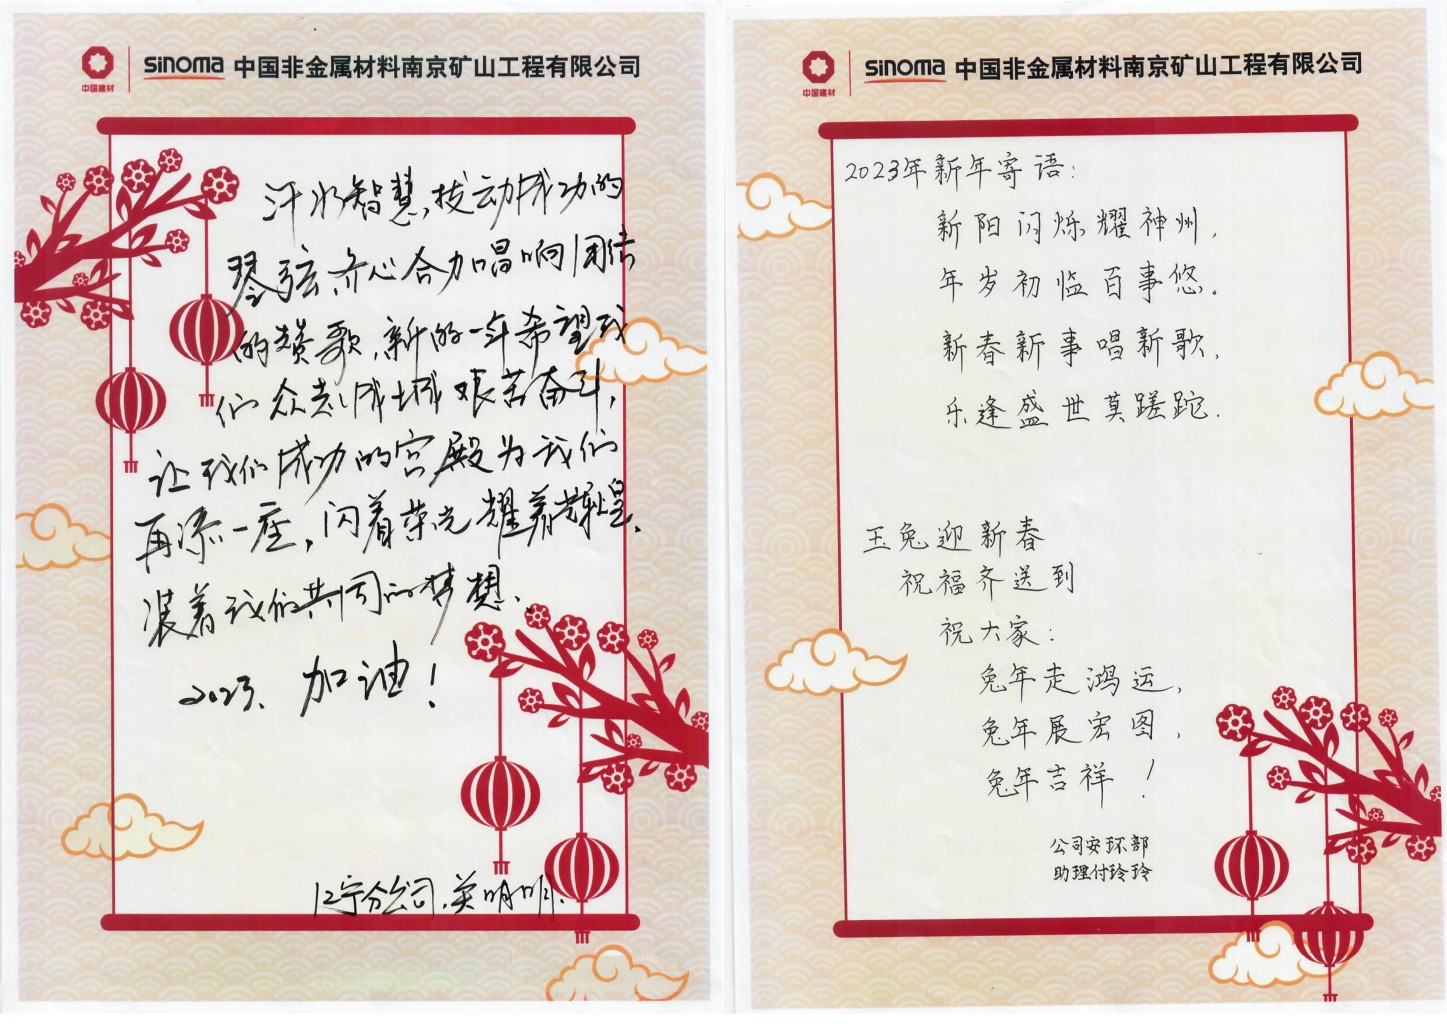 中国建材
sinoma 中国非金属材料南京矿山工程有限公司
汗水智慧,拨动成功的
琴弦,齐心合力唱响团结
的赞歌,新的一年希望我
们众志成城艰苦奋斗,
让我们成功的宫殿为我们
再添一座,闪着荣光耀着辉煌,
装着我们共同的梦想、
2023、加油!
江宁分公司、 明明、
中国建材
sinoma 中国非金属材料南京矿山工程有限公司
2023年新年寄语:
新阳闪烁耀神州,
年岁初临百事悠。
新春新事唱新歌,
乐逢盛世莫蹉跎.
玉兔迎新春
祝福齐送到
祝大家:
兔年走鸿运,
兔年展宏图,
兔年吉祥!
公司安环部
助理付玲玲